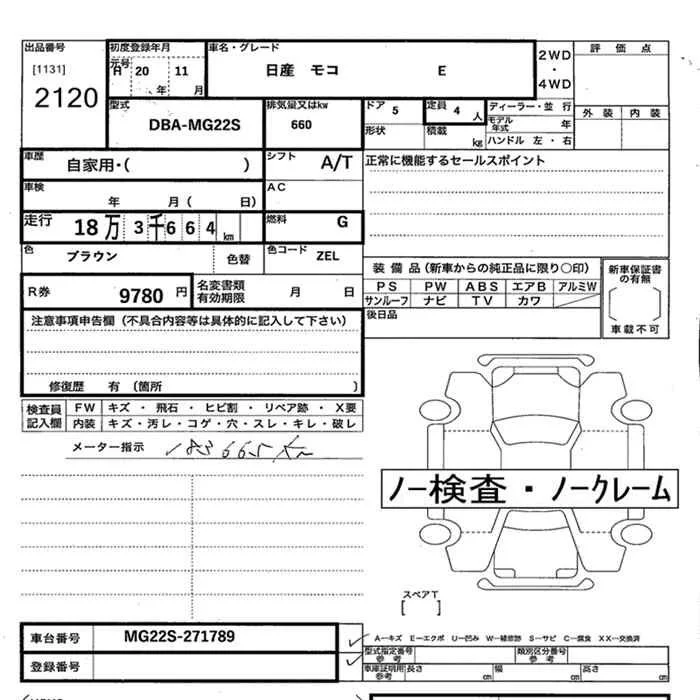 出品番号 初度登録年月 車名・グレード 2WD 評価点
[1131] 元号 H 20 11 日産 モコ E ・
2120 年 月 4WD
型式 排気量又はkw ドア 5 定員 4 人 ディーラー・並行 外装 内装
DBA-MG22S 660 モデル年式 年
形状 積載 kg ハンドル 左・右
車歴 自家用・( ) シフト A/T 正常に機能するセールスポイント
車検 年 月( 日) AC
走行 18万 3千664 km 燃料 G
色 ブラウン 色替 色コード ZEL
装備品(新車からの純正品に限り○印) 新車保証書の有無
R券 9780 円 名変書類有効期限 月 日 PS PW ABS エアB アルミW
サンルーフ ナビ TV カワ
注意事項申告欄(不具合内容等は具体的に記入して下さい) 後日品 車載不可
修復歴 有 (箇所 )
検査員記入欄 FW キズ・飛石・ヒビ割・リペア跡・X要
内装 キズ・汚レ・コゲ・穴・スレ・キレ・破レ
メーター指示 183665km
ノー検査・ノークレーム
スペアT
[ ]
車台番号 MG22S-271789 A−キズ E−エクボ U−凹み W−補修跡 S−サビ C−腐食 XX−交換済
型式指定番号 参考 類別区分番号 参考
登録番号 車庫証明用参考 長さ cm 幅 cm 高さ cm